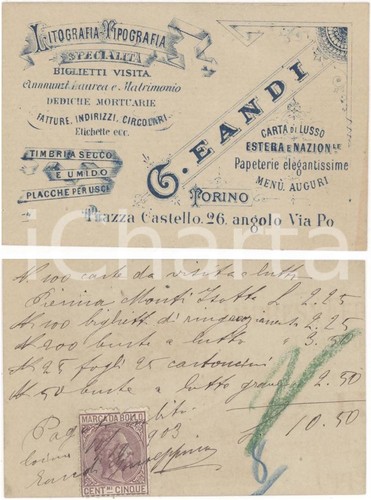 LITOGRAFIA-TIPOGRAFIA
SPECIALITÀ
BIGLIETTI VISITA
Annunzi Laurea e Matrimonio
DEDICHE MORTUARIE
FATTURE, INDIRIZZI, CIRCOLARI
Etichette ecc.
TIMBRI A SECCO
E UMIDO
PLACCHE PER USCI
G. EANDI
CARTA DI LUSSO
ESTERA E NAZIONLE
Papeterie elegantissime
MENÙ, AUGURI
TORINO
Piazza Castello, 26, angolo Via Po
iCharta
N 100 carte da visita a lutto
Pierina Monti L 2.25
N 100 biglietti di ringraziamento 2.25
N 200 buste a lutto 3.50
N 25 fogli 25 cartoncini
N 50 buste a lutto 2.50
£ 10.50
MARCA DA BOLLO
903
CENT.MI CINQUE
Eandi Giuseppina